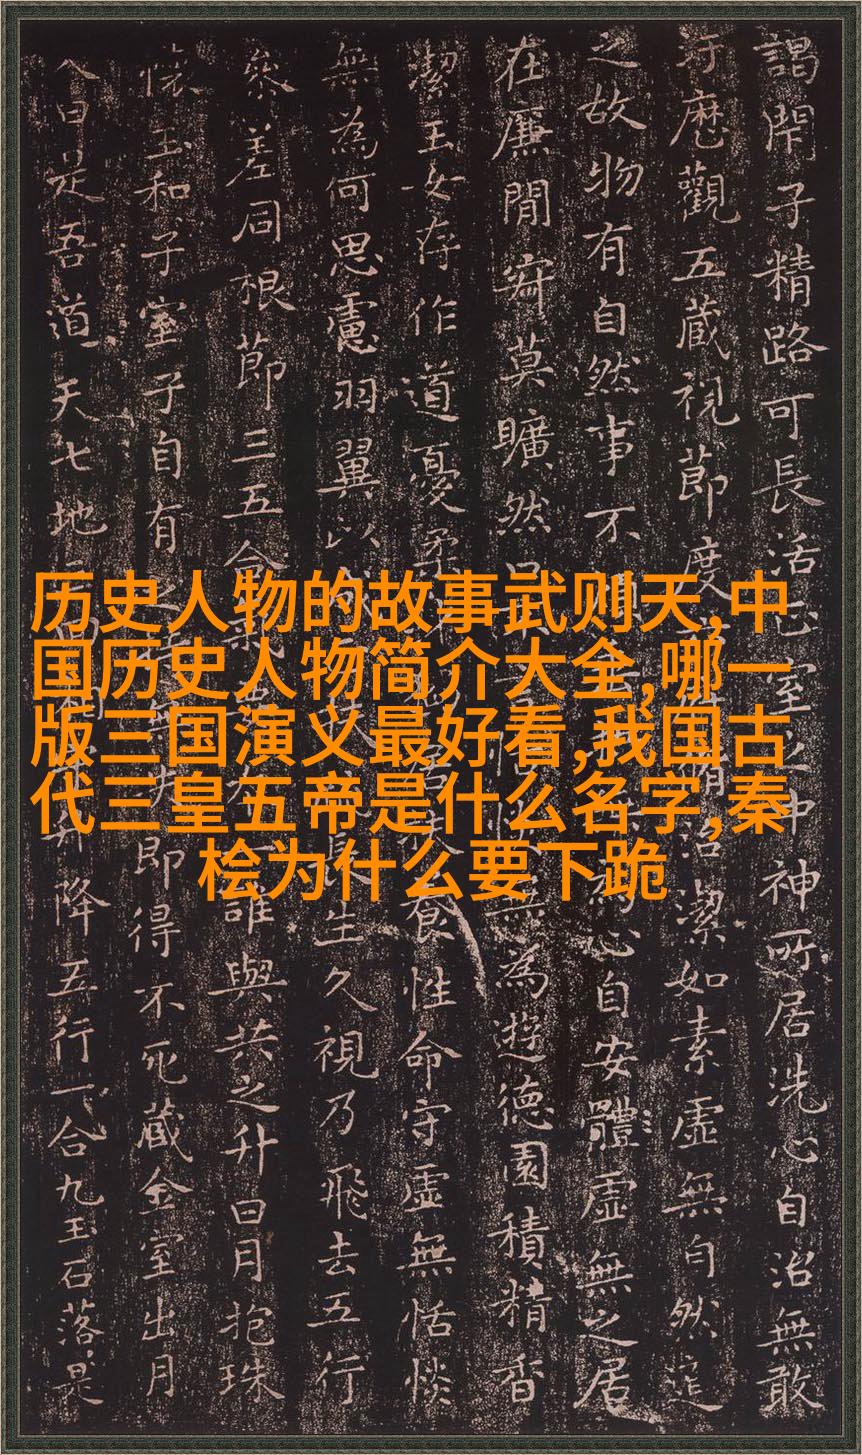 歷史人物的故事武则天,中
国历史人物简介大全,哪一
版三国演义最好看,我国古
代三皇五帝是什么名字,秦
桧为什么要下跪
子精路可長活室之中神所居洗心自治無敢
汙歷觀五藏視節度脩治潔如素虛無自然道
之故物有自然事不心自安體虛無之居
在廉閒寂莫曠然無為遊德園積精香
潔玉女存作道憂柔養性命守虛無恬惔
無為何思慮羽翼以長生久視乃飛去五行
參差同根節三五合誰與共之升日月抱珠
懷玉和子室子自有即得不死藏金室出月
入日是吾道天七地升降五行一合九玉石落是